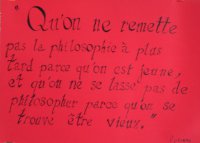 "Qu'on ne remette
pas la philosophie à plus
tard parce qu'on est jeune,
et qu'on ne se lasse pas de
philosopher parce qu'on se
trouve être vieux."